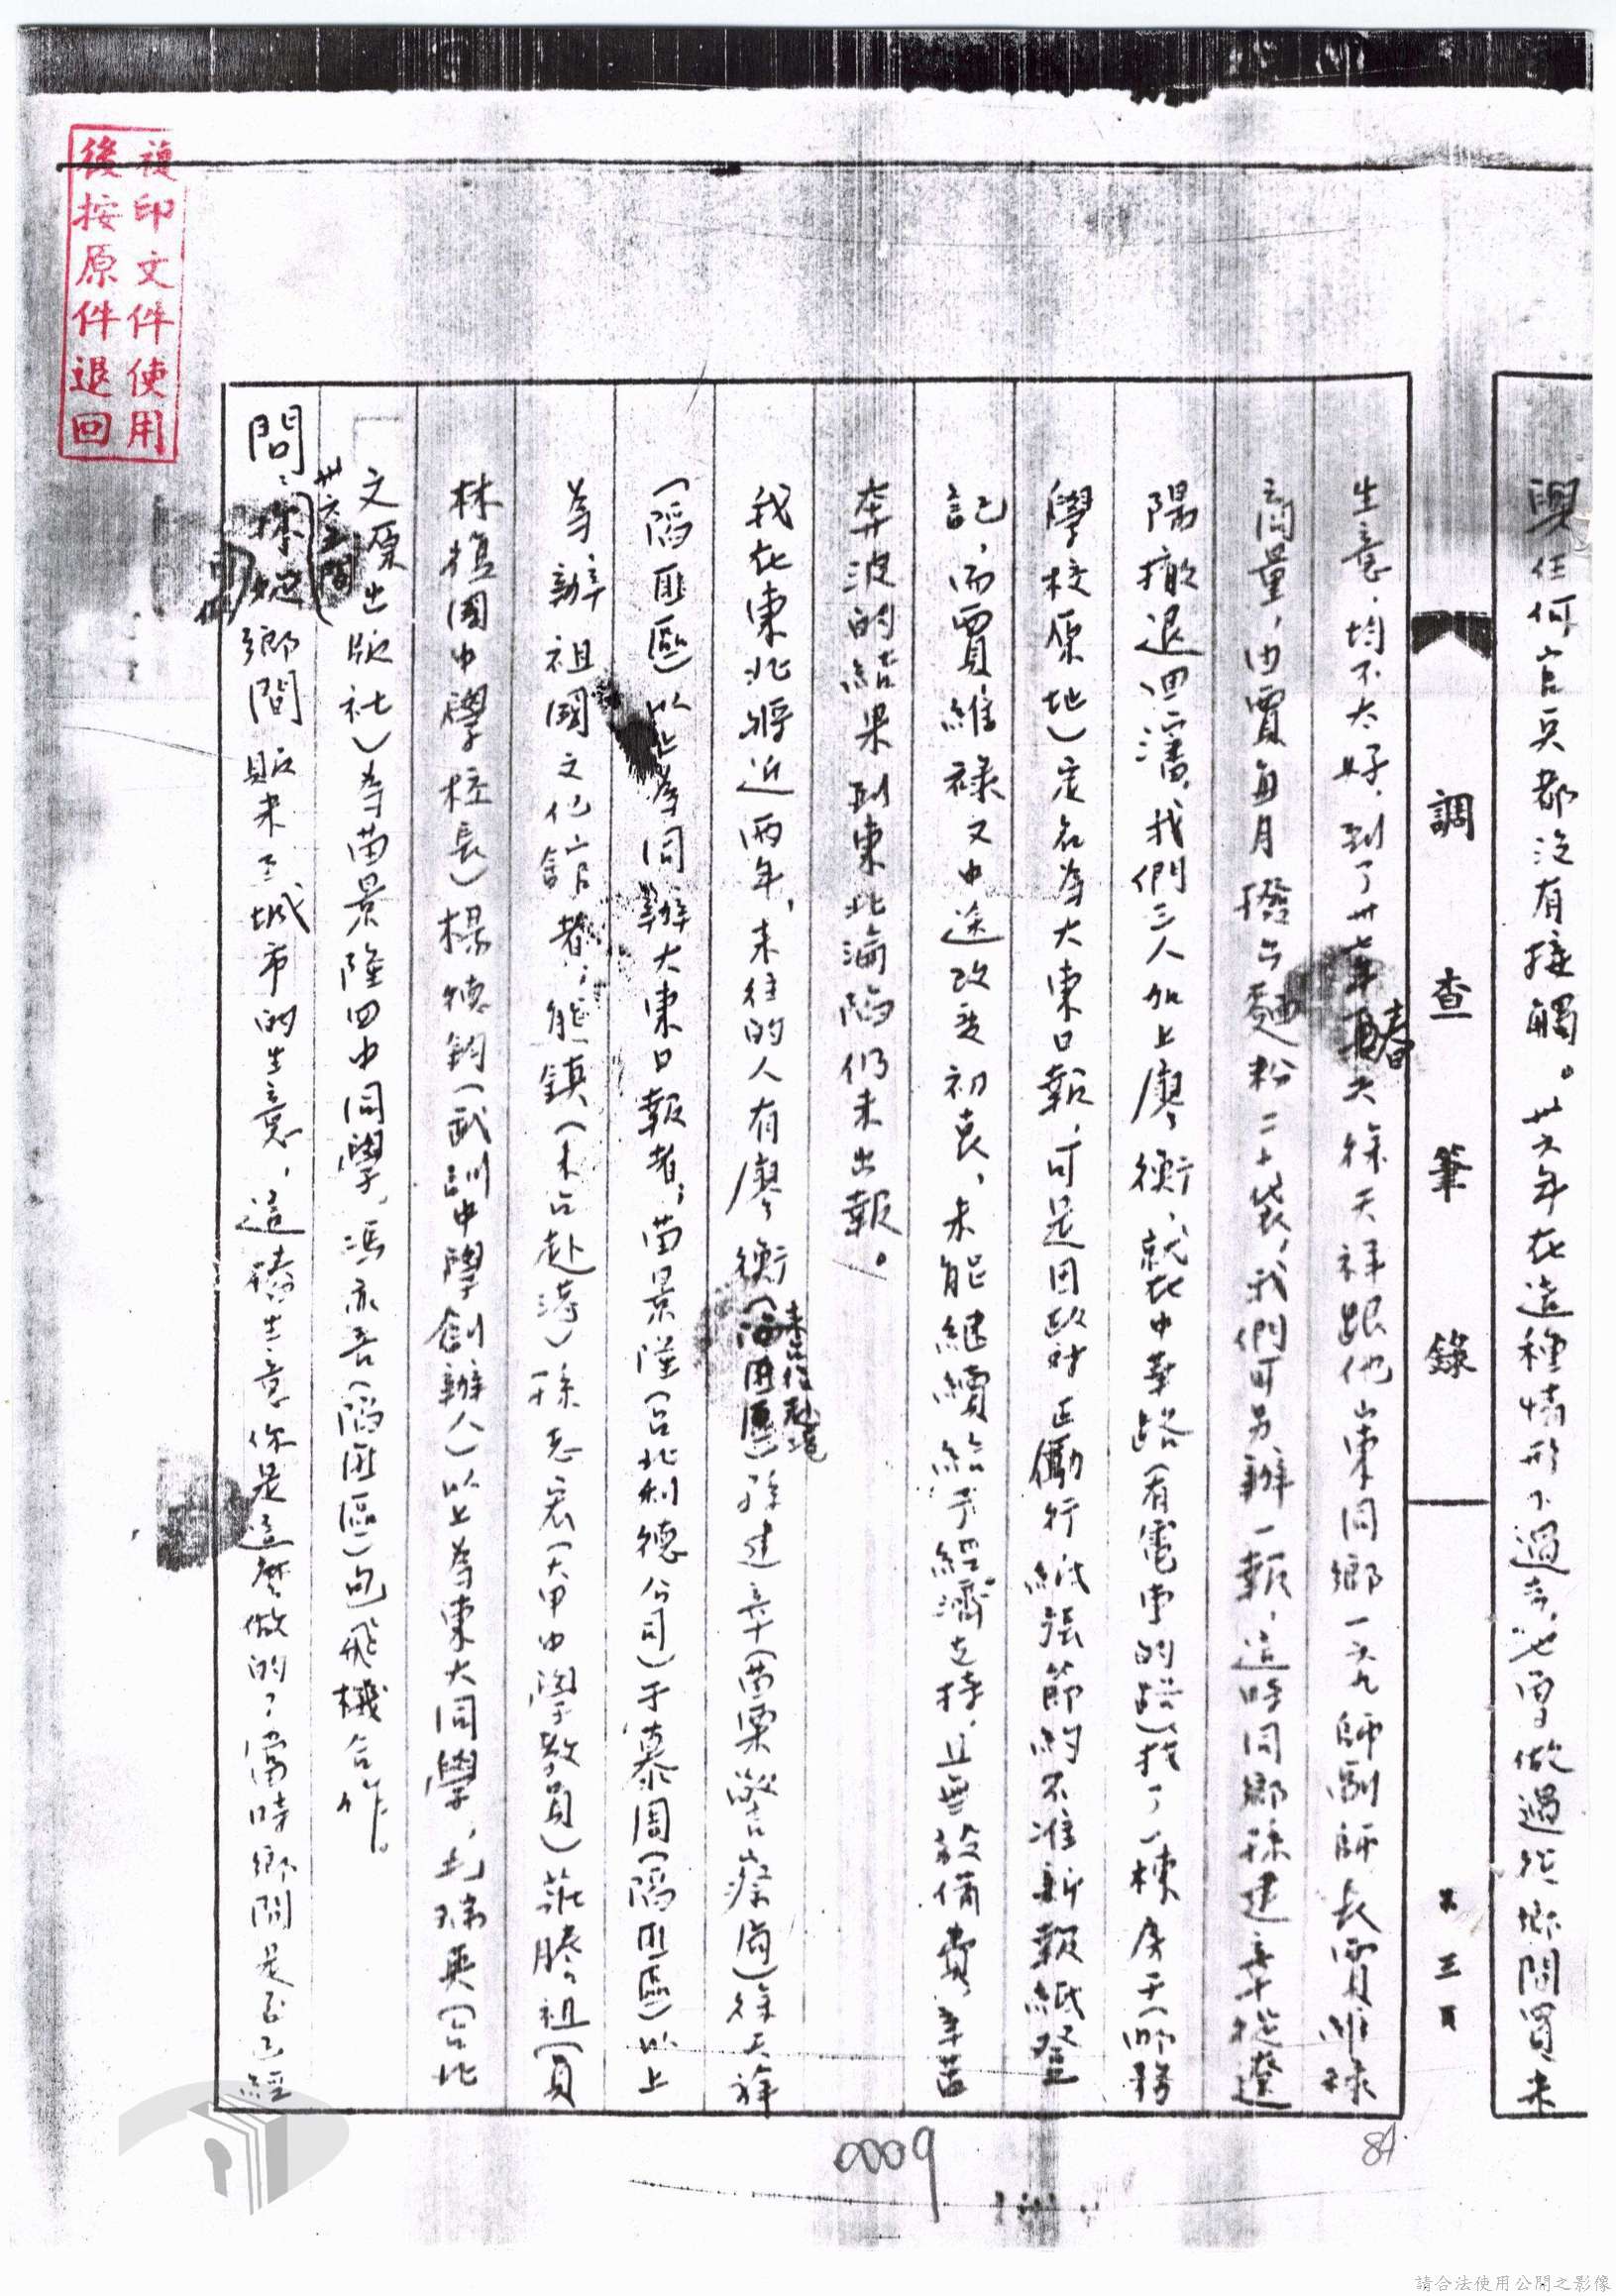 與任何官兵都沒有接觸。卅六年在這種情形下過去,也曾做過從鄉間買來
調查筆錄
第三頁
生意,均不太好,到了卅七年春天徐天祥跟他山東同鄉一六九師副師長賈維祿
商量,由賈每月撥出麵粉二十袋,我們可另辦一報,這時同鄉孫建章從遼
陽撤退回瀋,我們三人加上廖衡,就在中華路(有電車的路)找了一棟房子(
學校原地)定名為大東日報,可是因政府正勵行紙張節約不准新報紙登
記,而賈維祿又中途改变初衷,未能継續給予經濟支持,且無設備費,辛苦
奔波的結果到東北淪陷仍未出報。
我在東北將近兩年,來往的人有廖衡(陷匪區)孫建章(苗栗警察局)徐天祥
(陷匪區)以上為同辦大東日報者;苗景隆(台北利德公司)于慕周(陷匪區)以上
為辦祖國文化館者;熊鎮(未占赴湾)孫志宏(大甲中學教員)莊勝祖(員
林復國中學校長)楊德鈞(武訓中學創辦人)以上為東大同學,瑞英(台北
文原出版社)為苗景隆四中同學,馮亦吾(陷匪區)包飛機合作。
問:你從鄉間販來到城市的生意,這種生意你是這麼做的?當時鄉間是否已經
複印文件使用
後按原件退回
0009
84
請合法使用公開之影像